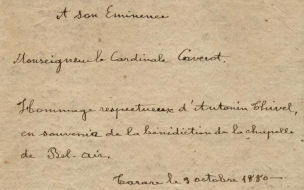 A son Eminence
Monseigneur le Cardinale Caverot.
Hommage respectueux d'Antonin Thivel,
en souvenir de la bénédiction de la chapelle
de Bel-air.
Tarare le 9 octobre 1880-